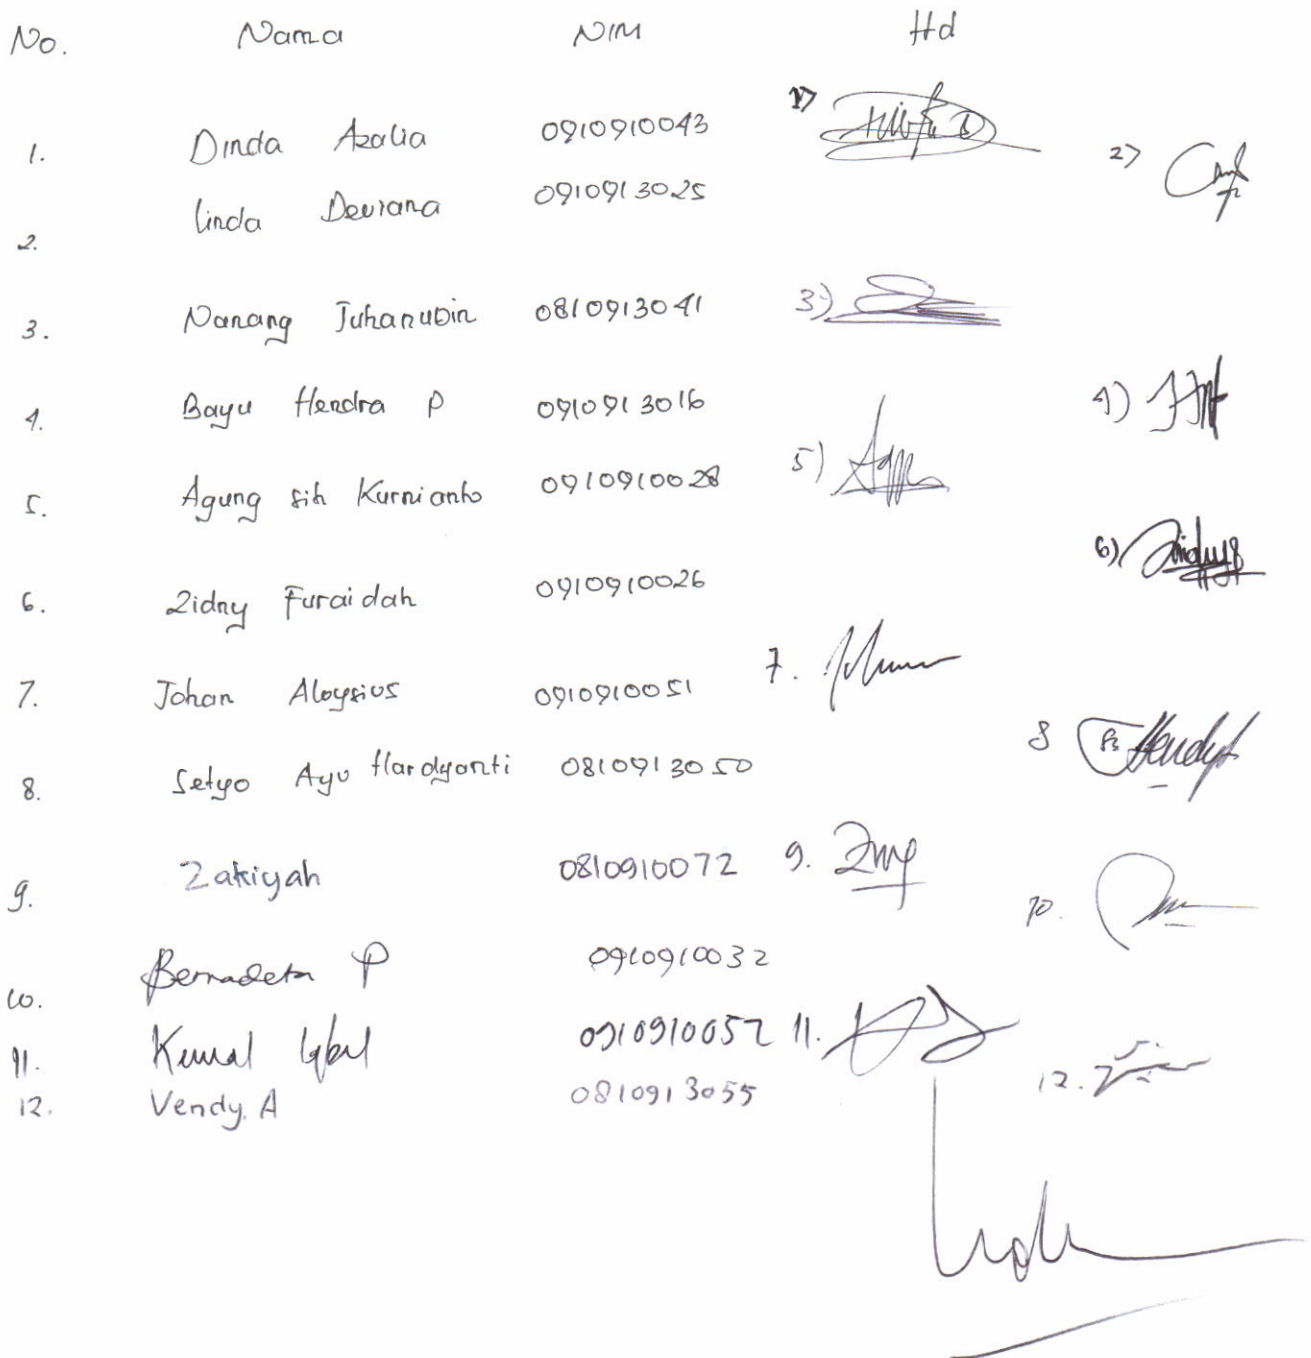 No. Nama NIM Ttd
1. Dinda Azalia 0910910043 1)
2. Linda Deviana 0910913025 2)
3. Nanang Juhanudin 0810913041 3)
4. Bayu Hendra P 0910913016 4)
5. Agung sih Kurnianto 0910910028 5)
6. Zidny Furaidah 0910910026 6)
7. Johan Aloysius 0910910051 7.
8. Setyo Ayu Hardyanti 0810913050 8
9. Zakiyah 0810910072 9.
10. Bernadeta P 0910910032 10.
11. Kemal Iqbal 0910910057 11.
12. Vendy. A 0810913055 12.